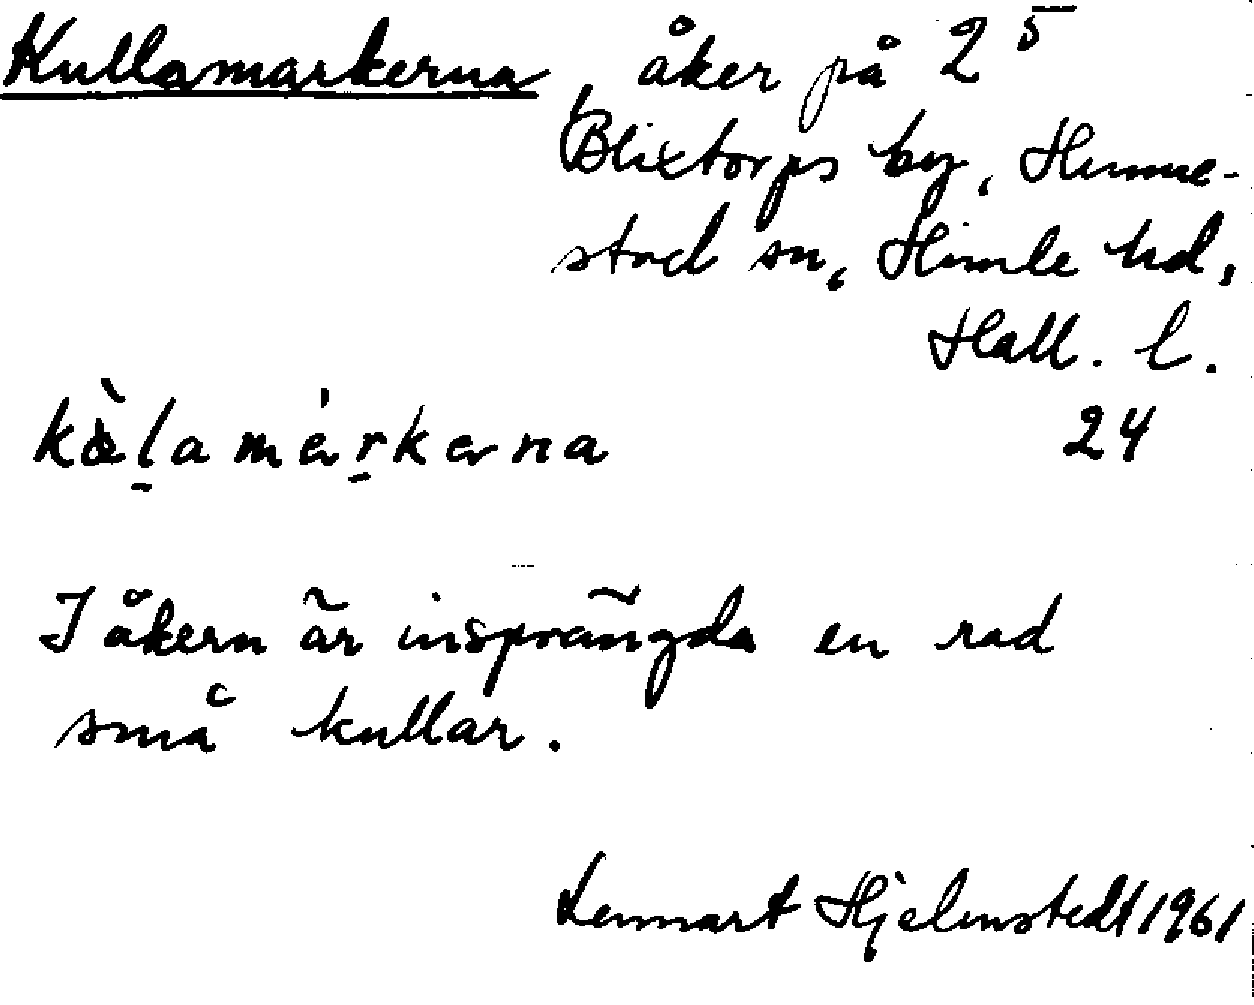 Kullamarkerna, åker på 2 5
Blixtorps by, Hunne-
stad sn, Himle hd,
Hall. l.
kàlamárkerna 24
I åkern är insprängda en rad
små kullar.
Lennart Hjelmstedt 1961